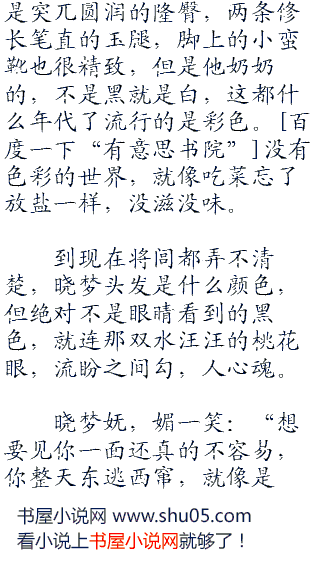 是突兀圆润的隆臀，两条修
长笔直的玉腿，脚上的小蛮
靴也很精致，但是他奶奶
的，不是黑就是白，这都什
么年代了流行的是彩色。[百
度一下“有意思书院”]没有
色彩的世界，就像吃菜忘了
放盐一样，没滋没味。
到现在将闾都弄不清
楚，晓梦头发是什么颜色，
但绝对不是眼睛看到的黑
色，就连那双水汪汪的桃花
眼，流盼之间勾，人心魂。
晓梦妩，媚一笑：“想
要见你一面还真的不容易，
你整天东逃西窜，就像是
书屋小说网 www.shu05.com
看小说上书屋小说网就够了！